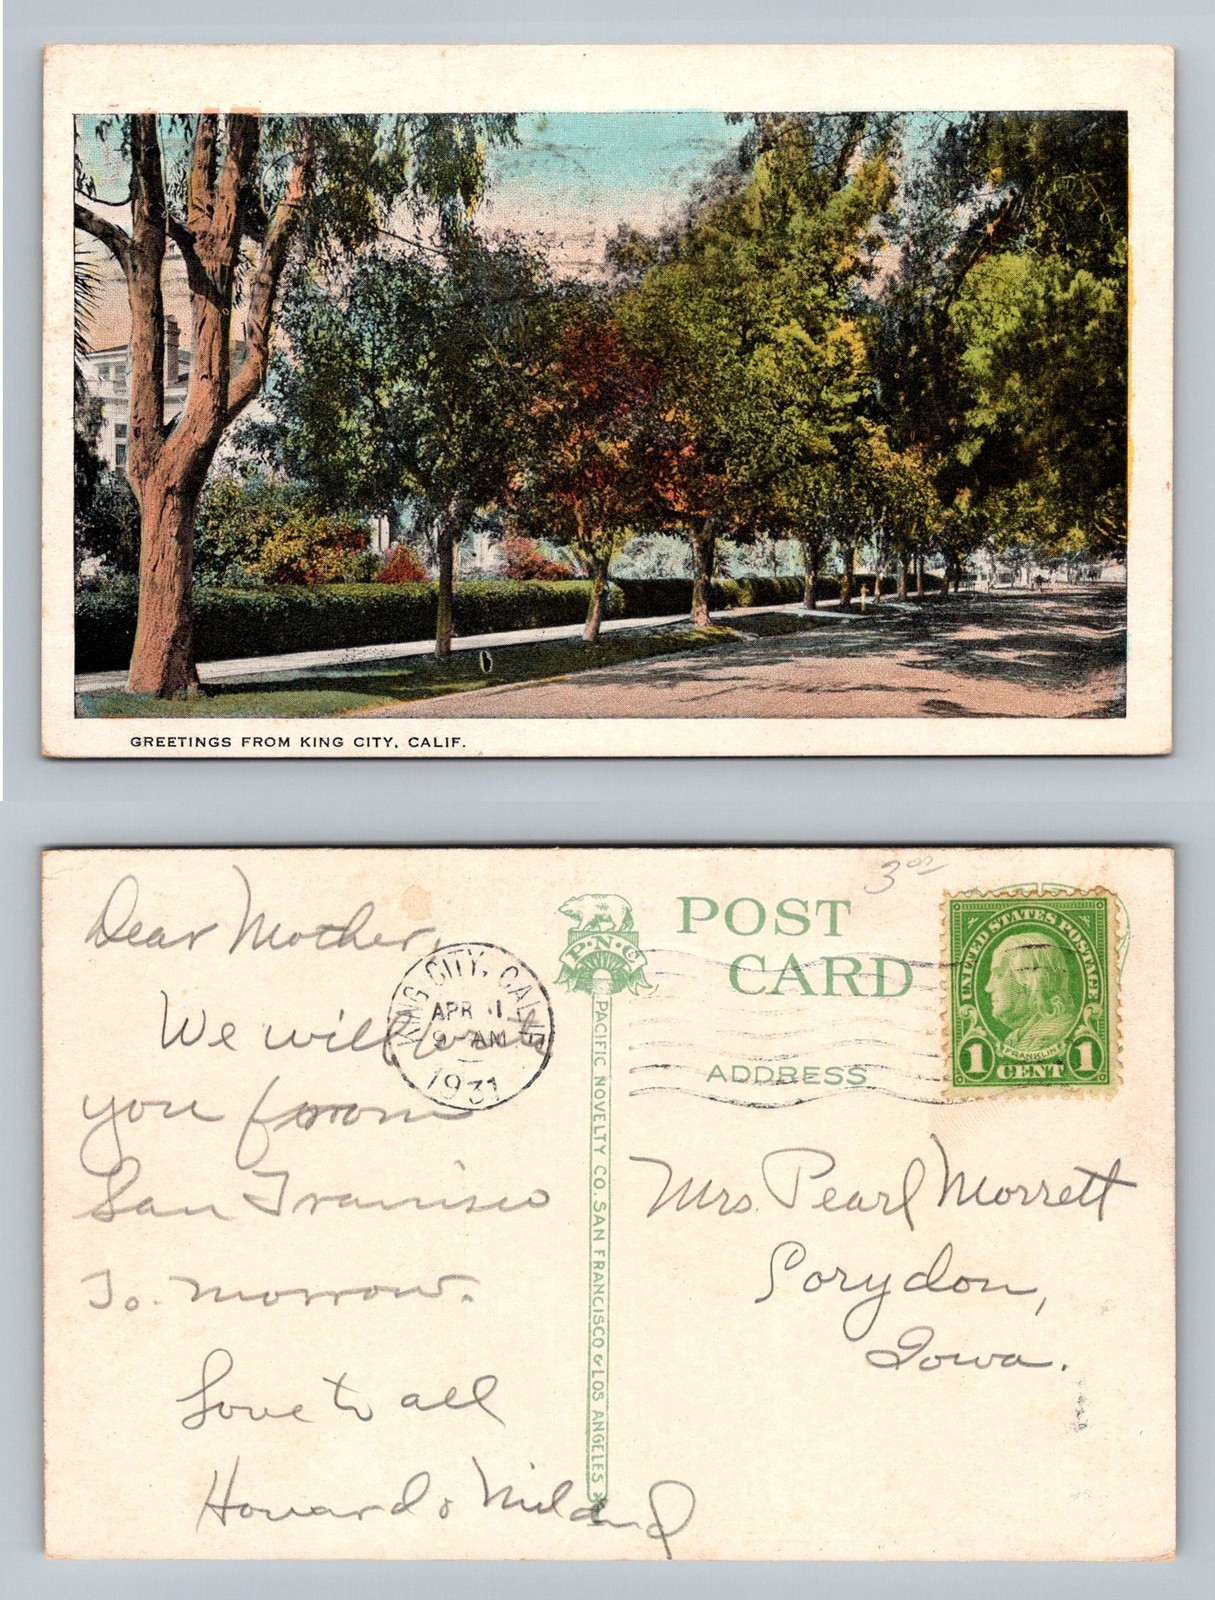 GREETINGS FROM KING CITY, CALIF.
Dear Mother,
We will write
you from
San Francisco
To. morrow.
Love to all
Howard & Mildred
KING CITY, CALIF.
APR 1
9 AM
1931
P·N·C
PACIFIC NOVELTY CO. SAN FRANCISCO & LOS ANGELES
3 00
POST
CARD
ADDRESS
UNITED STATES POSTAGE
FRANKLIN
1 CENT 1
Mrs. Pearl Morrett
Corydon,
Iowa.